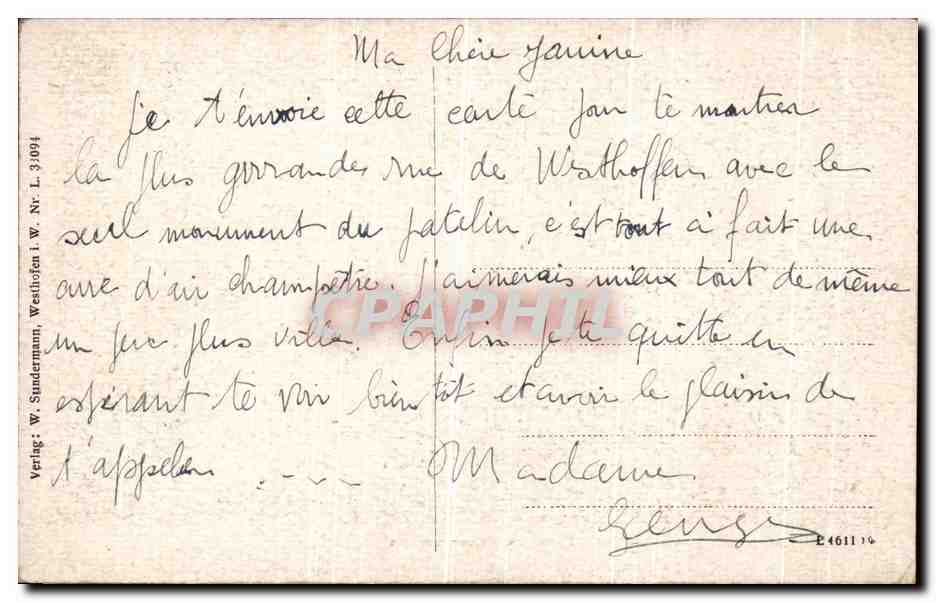 Ma Chère Janine
Je t'envoie cette carte pour te montrer
la plus grande rue de Westhoffen avec le
seul monument du patelin, c'est tout à fait une
d'air champêtre. J'aimerais mieux tout de même
un peu plus ville. Enfin je te quitte en
espérant te voir bientôt et avoir le plaisir de
t'appeler .---- Madame
Verlag: W. Sundermann, Westhofen i. W. Nr. L. 33094
CPAPHIL